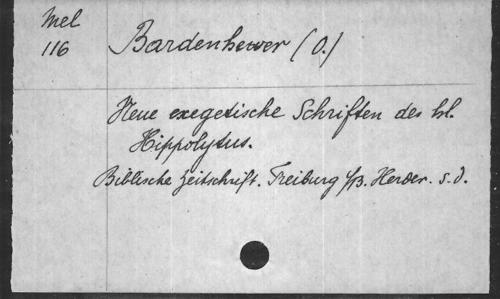 Mel
116
Bardenhewer (O.)
Neue exegetische Schriften des hl.
Hippolytus.
Biblische Zeitschrift. Freiburg i/B. Herder. s.d.